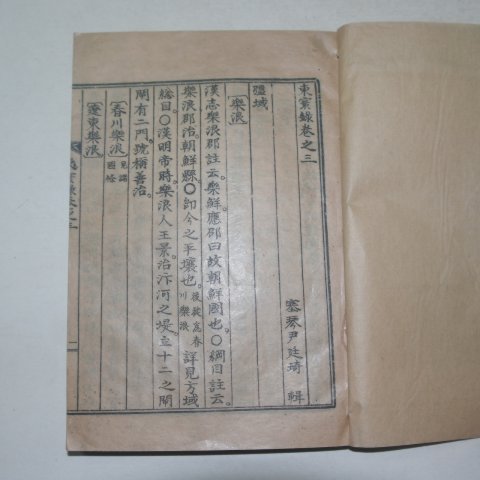 東寰錄卷之三
塞琴尹廷琦 輯
疆域
樂浪
漢志樂浪郡註云樂鮮應邵曰故朝鮮國也。○綱目註云。
樂浪郡治朝鮮縣。○卽今之平壤也。後徙爲春川樂浪詳見方域
總目。○漢明帝時。樂浪人王景治汴河之堤。立十二之閘
閘有二門。號稱善治。
春川樂浪見諸圖經
遼東樂浪